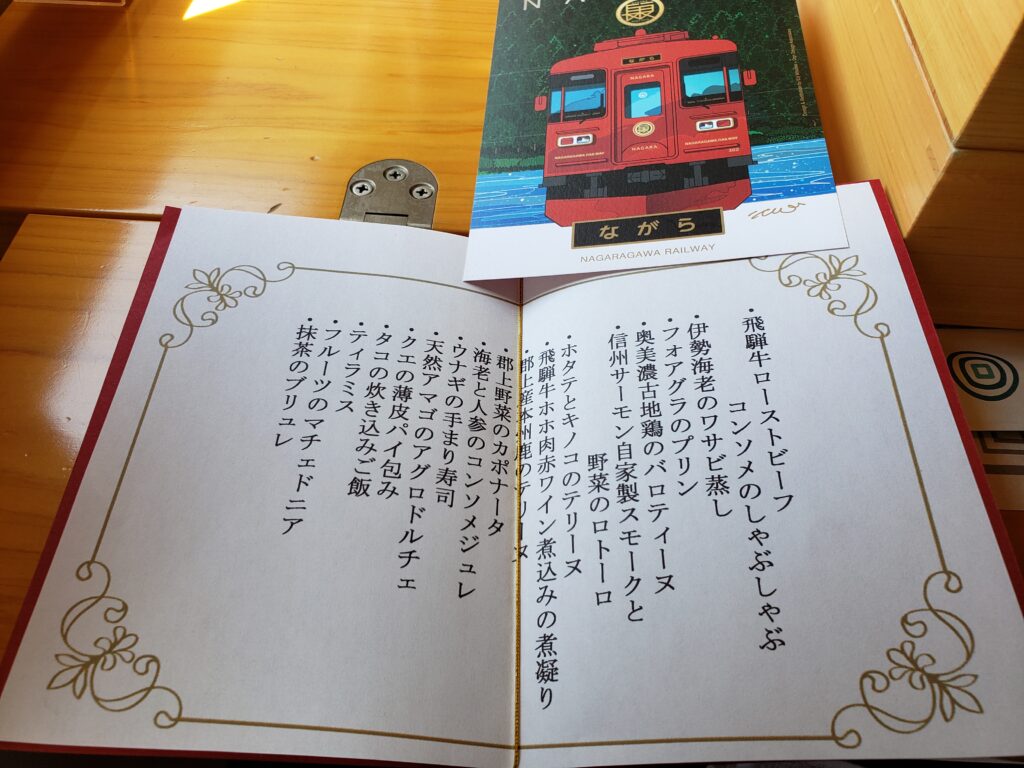 ながら
NAGARA
NAGARAGAWA RAILWAY
NAGARAGAWA RAILWAY
NAGARA
302
ながら
NAGARAGAWA RAILWAY
・飛騨牛ローストビーフ
コンソメのしゃぶしゃぶ
・伊勢海老のワサビ蒸し
・フォアグラのプリン
・奥美濃古地鶏のバロティーヌ
・信州サーモン自家製スモークと
野菜のロトーロ
・ホタテとキノコのテリーヌ
・飛騨牛ホホ肉赤ワイン煮込みの煮凝り
・郡上産本州鹿のテリーヌ
・郡上野菜のカポナータ
・海老と人参のコンソメジュレ
・ウナギの手まり寿司
・天然アマゴのアグロドルチェ
・クエの薄皮パイ包み
・タコの炊き込みご飯
・ティラミス
・フルーツのマチェドニア
・抹茶のブリュレ